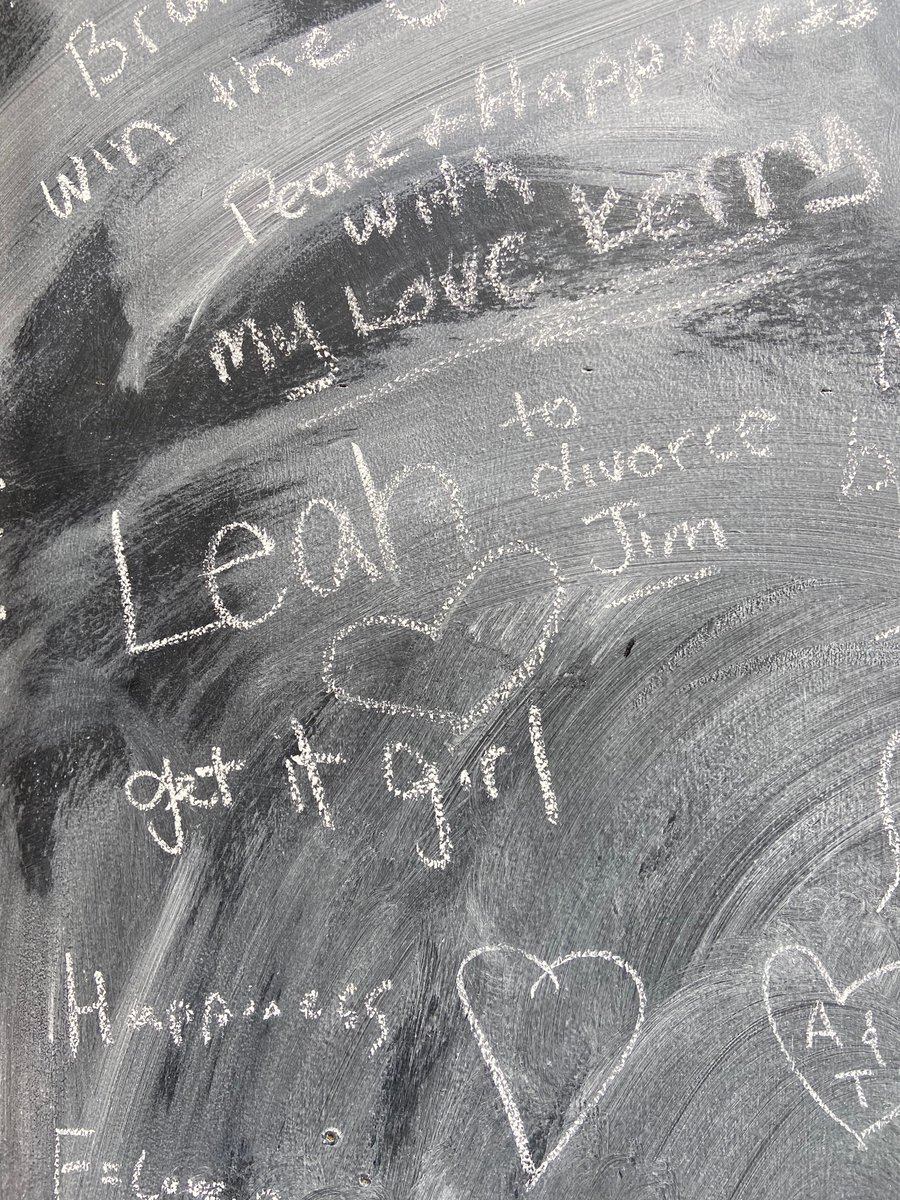 win the
Peace + Happiness
with
My Love Kerry
Leah
to
divorce
Jim
get it girl
Happiness
A &
T